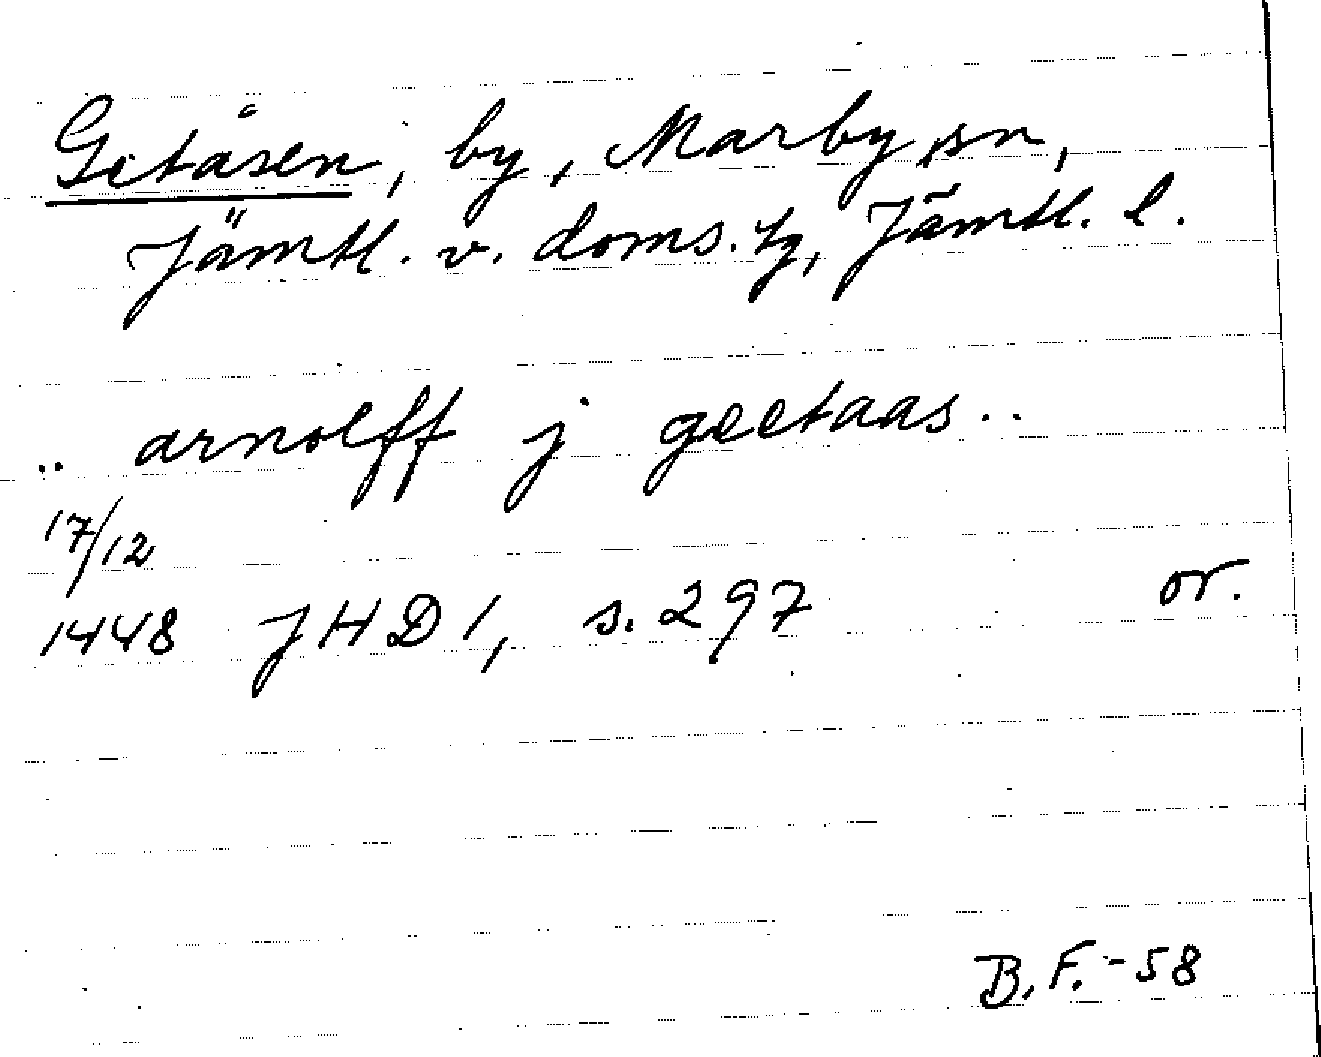 Getåsen, by, Marby sn,
Jämtl. v. doms. tg, Jämtl. l.
.. arnolff j geetaas ..
17/12
1448 JHD 1, s. 297 or.
B. F. - 58